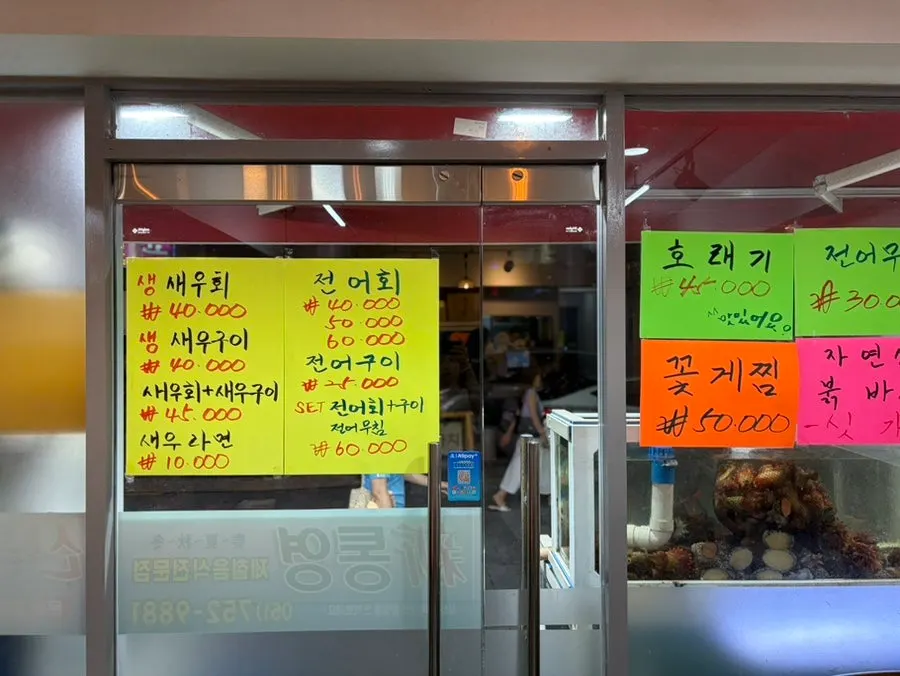 생 새우회
₩40.000
생 새우구이
₩40.000
새우회+새우구이
₩45.000
새우라면
₩10.000
전어회
₩40.000
50.000
60.000
전어구이
₩25.000
SET 전어회+구이
전어무침
₩60.000
호래기
₩45.000
맛있어요
전어무
₩30.0
꽃게찜
₩50.000
자연
붉바
싯가
Alipay+
통영
제철음식전문점
061)752-9881